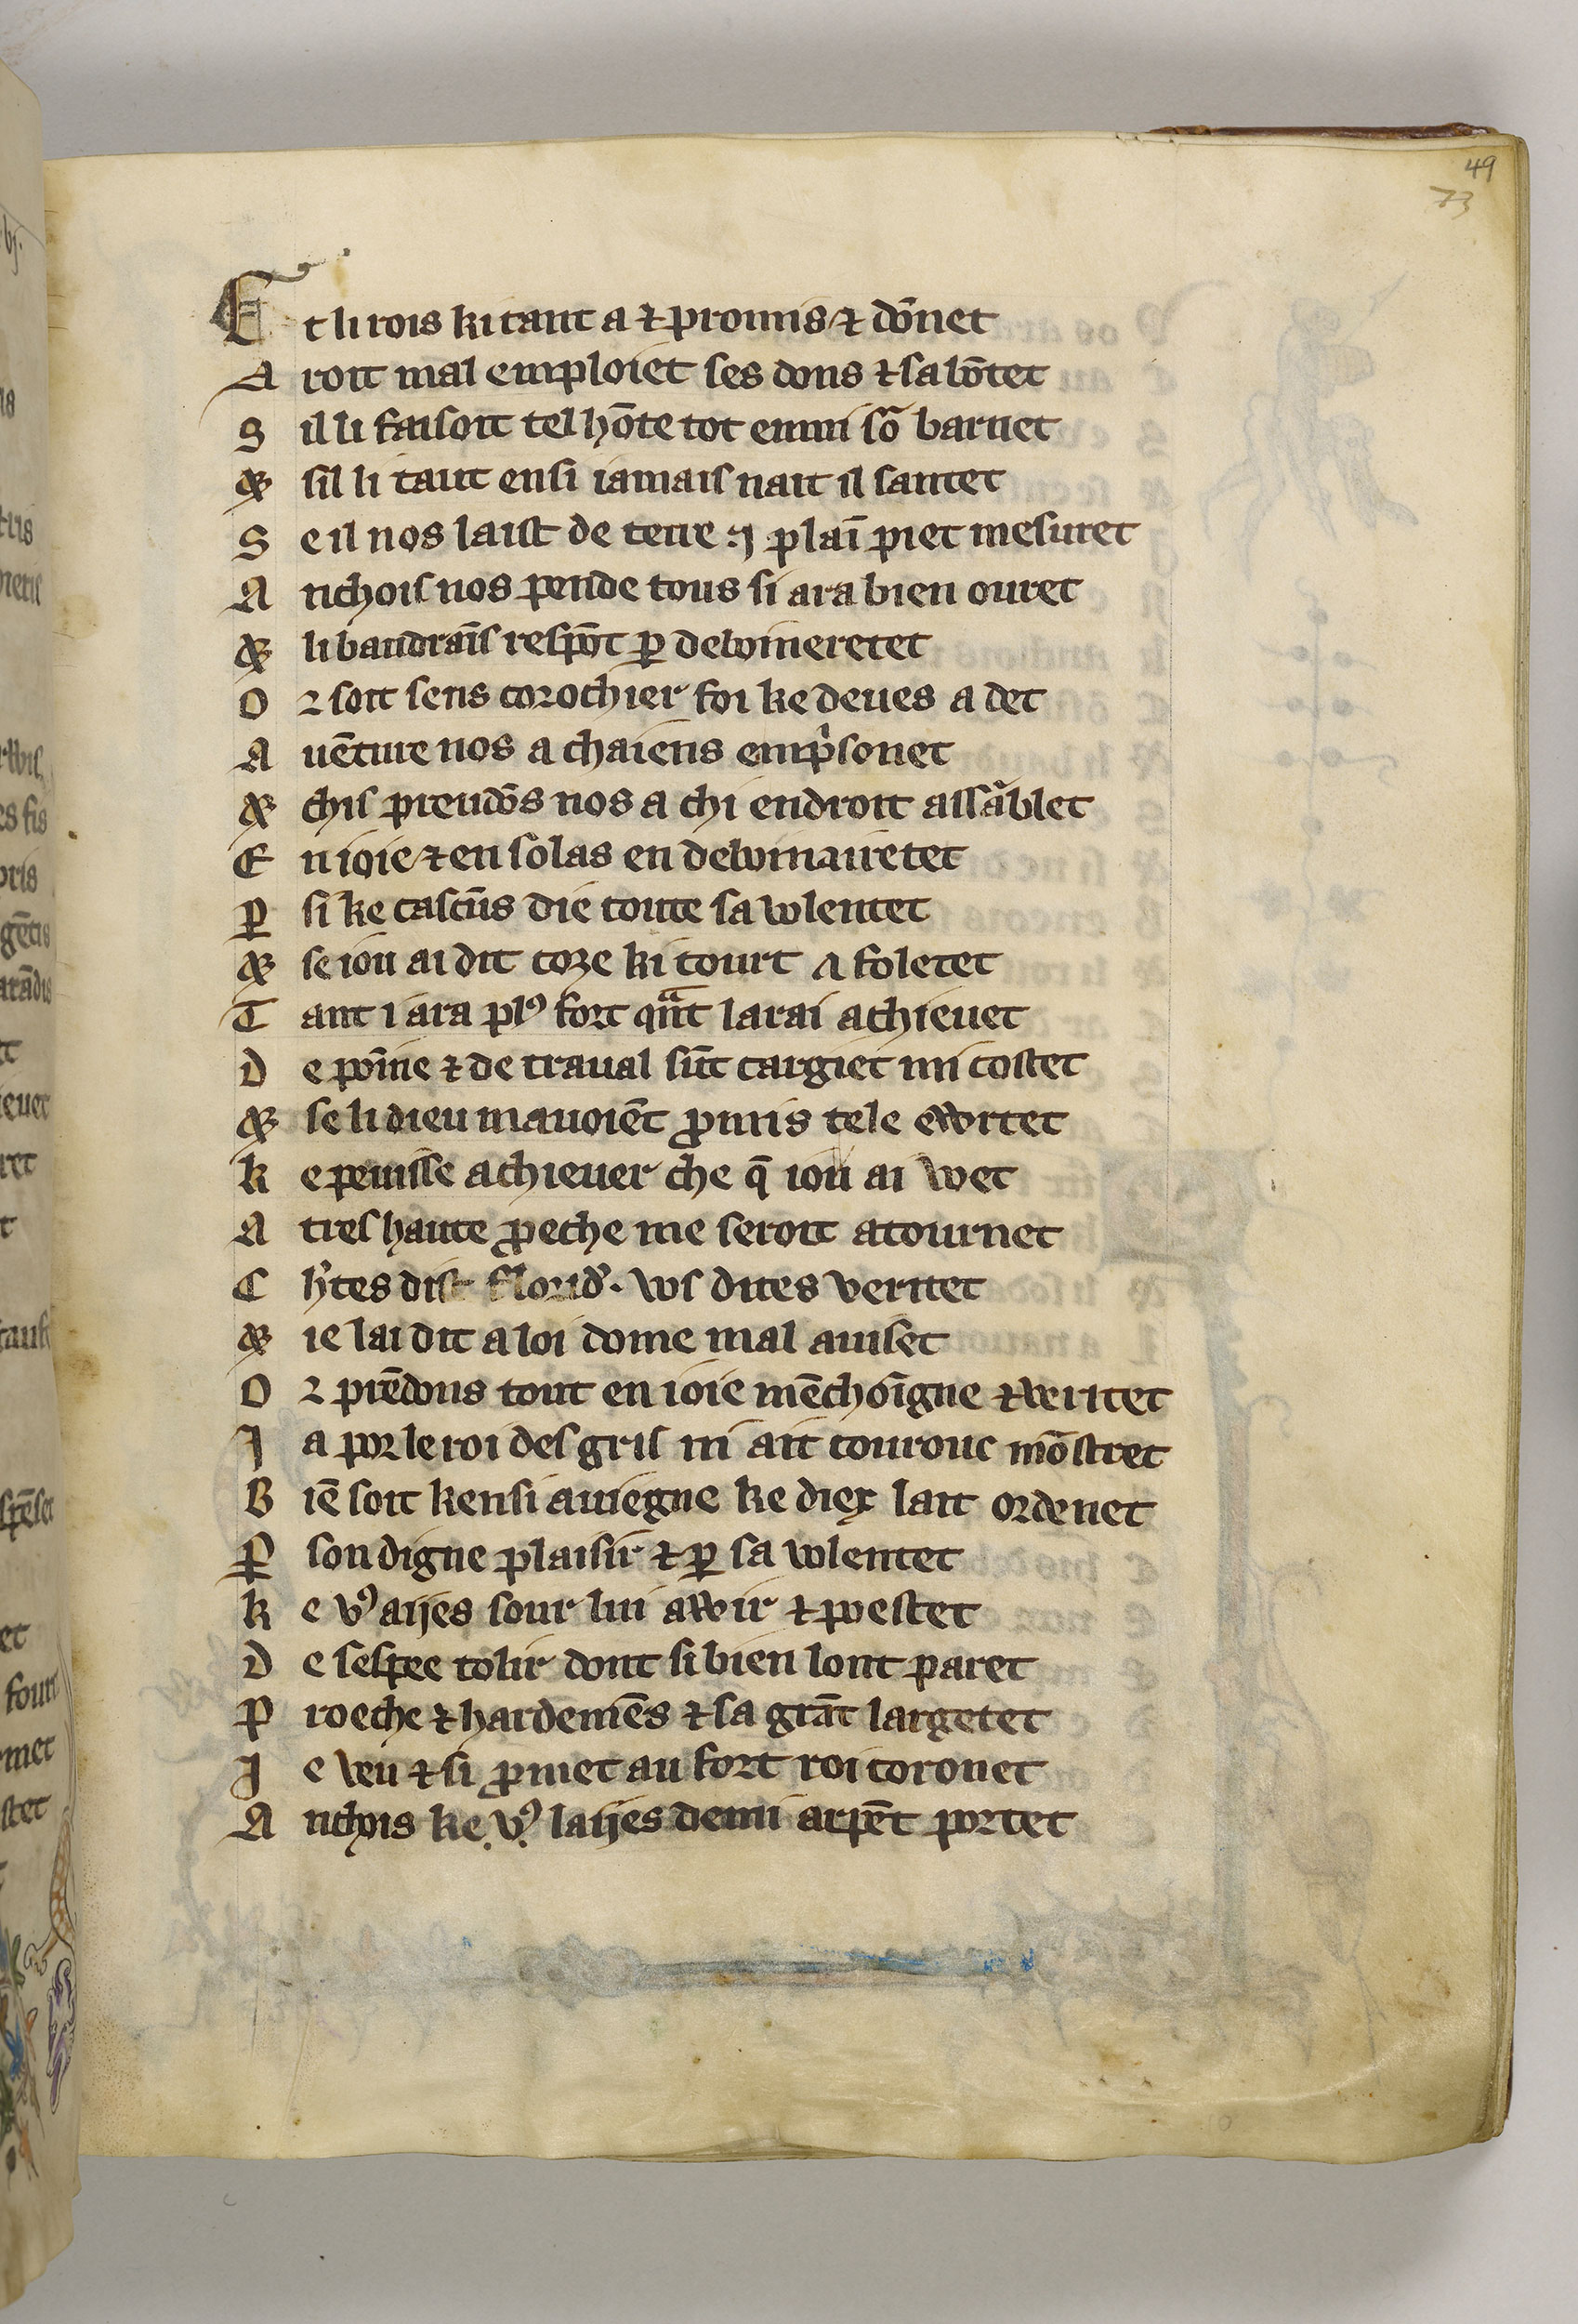 49
73
Et li rois ki tant a ⁊ promis ⁊ dōnet
Aroit mal emploiet ses dons ⁊ sa bōtet
Sil li faisoit tel hōte tot enmi sō barnet
⁊ sil li taut ensi iamais nait il santet
Se il nos laist de terre .j. plaī piet mesuret
Anchois nos pende tous si ara bien ouret
⁊ li baudrais respōt ꝑ debonieretet
Or soit sens corochier foi ke deues a det
Auēture nos a chaiens emprsonet
⁊ chis preudōs nos a chi endroit assāblet
En ioie ⁊ en solas en debonairetet
ꝑ si ke cascūs die toute sa volentet
⁊ se iou ai dit coze ki tourt a foletet
Tant i ara plꝰ fort qnt larai achieuet
De poīne ⁊ de traual sūt cargiet mi costet
⁊ se li dieu mauoiēt ꝓmis tele ewrtet
ke peuisse achieuer che q̄ iou ai wet
A tres haute ꝓeche me seroit atournet
Chrtes dist florid. vos dites veritet
⁊ ie lai dit a loi dome mal auiset
Or prēdons tout en ioie mēchoīgne ⁊ veritet
Ja por le roi des gris ni ait courouc mōstret
Biē soit kensi auiegne ke diex lait ordenet
ꝑ son digne plaisir ⁊ ꝑ sa volentet
ke vꝰ aijes sour lui awir ⁊ poestet
De sespee tolir dont si bien lont paret
Proeche ⁊ hardemēs ⁊ sa grāt largetet
Je veu ⁊ si ꝓmet au fort roi coronet
Anchois ke vꝰ laijes demi arpēt portet